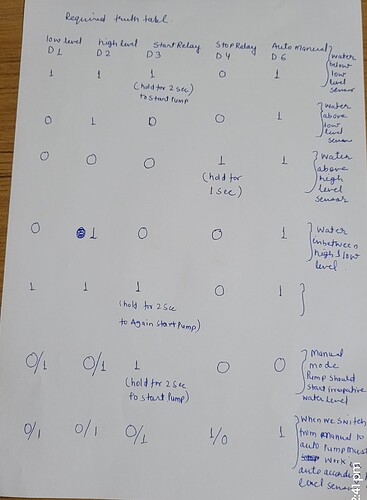 Required truth tabl.
low level high level Start Relay Stop Relay Auto Manual
D1 D2 D3 D4 D6
1 1 1 0 1
(hold for 2 Sec)
to Start Pump
water
below
low
level
sensor
0 1 0 0 1
water
above
low
level
sensor
0 0 0 1 1
(hold for
1 Sec)
water
above
high
level
sensor
0 1 0 0 1
water
inbetween
high & low
level
1 1 1 0 1
(hold for 2 Sec
to Again Start Pump)
0/1 0/1 1 0 0
(hold for 2 Sec
to start Pump)
Manual
mode
Pump should
start
water level
0/1 0/1 0/1 1/0 1
When we switch
from manual to
auto Pump must
work in
auto
level